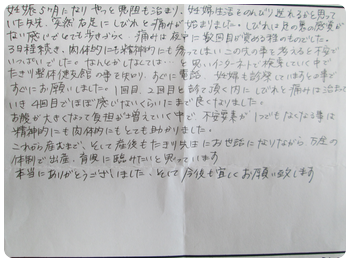 妊娠5ヶ月になり やっと悪阻も治まり、妊婦生活をのんびり送れるかと思って
いた矢先、突然右足にしびれと痛みが始まりました。しびれは足の裏の感覚が
ない感じでとても歩きづらく、痛みは夜中に数回目が覚める程のものでした。
3日程続き、肉体的にも精神的にも参ってしまい この先の事を考えると不安が
いっぱいでした。なんとかしなくては……と思い、インターネットで検索していく中で
たきり整体使気館の事を知り、すぐに電話。妊婦も診療していますとの事で
すぐにお願いしました。1回目、2回目と診て頂く内にしびれと痛みは治まって
いき 4回目でほぼ感じないくらいにまで良くなりました。
お腹が大きくなって負担が増えていく中で、不安要素が1つでもなくなる事は
精神的にも肉体的にもとても助かりました。
これから産むまで、そして産後もたきり先生にお世話になりながら、万全の
体制で出産、育児に臨みたいと思っています
本当にありがとうございました、そして今後も宜しくお願い致します